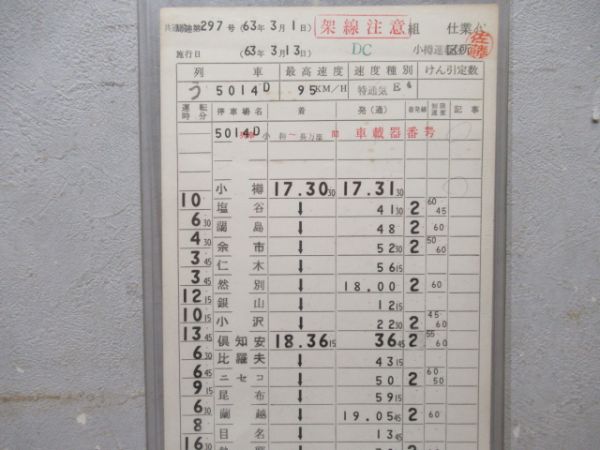 297号 (63年 3月 1日) 架線注意 組 仕業
施行日 (63年 3月 13日) DC 小樽運
列 車 最高速度 速度種別 けん引定数
5014D 95KM/H 特通気 E4
運転時分 停車場名 着 発(通) 着発線 制限速度 記事
5014D 小 樽〜長万部 間 車載器番号
小樽 17.30 30 17.31 30
10 塩谷 ↓ 41 30 2 60 45
6 30 蘭島 ↓ 48 2 60
4 30 余市 ↓ 52 30 2 50 60
3 45 仁木 ↓ 56 15
3 45 然別 ↓ 18.00 2 60
12 15 銀山 ↓ 12 15
10 15 小沢 ↓ 22 30 2 45 60
13 45 倶知安 18.36 15 36 45 2 55 60
6 30 比羅夫 ↓ 43 15
6 45 ニセコ ↓ 50 2 60 50
9 15 昆布 ↓ 59 15
6 30 蘭越 ↓ 19.05 45 2 60
8 目名 ↓ 13 45
16 30